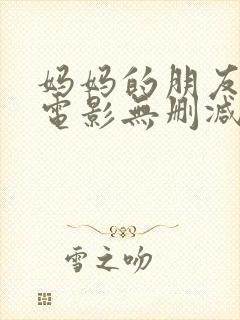 妈妈的朋友
電影無删减
雪之吻